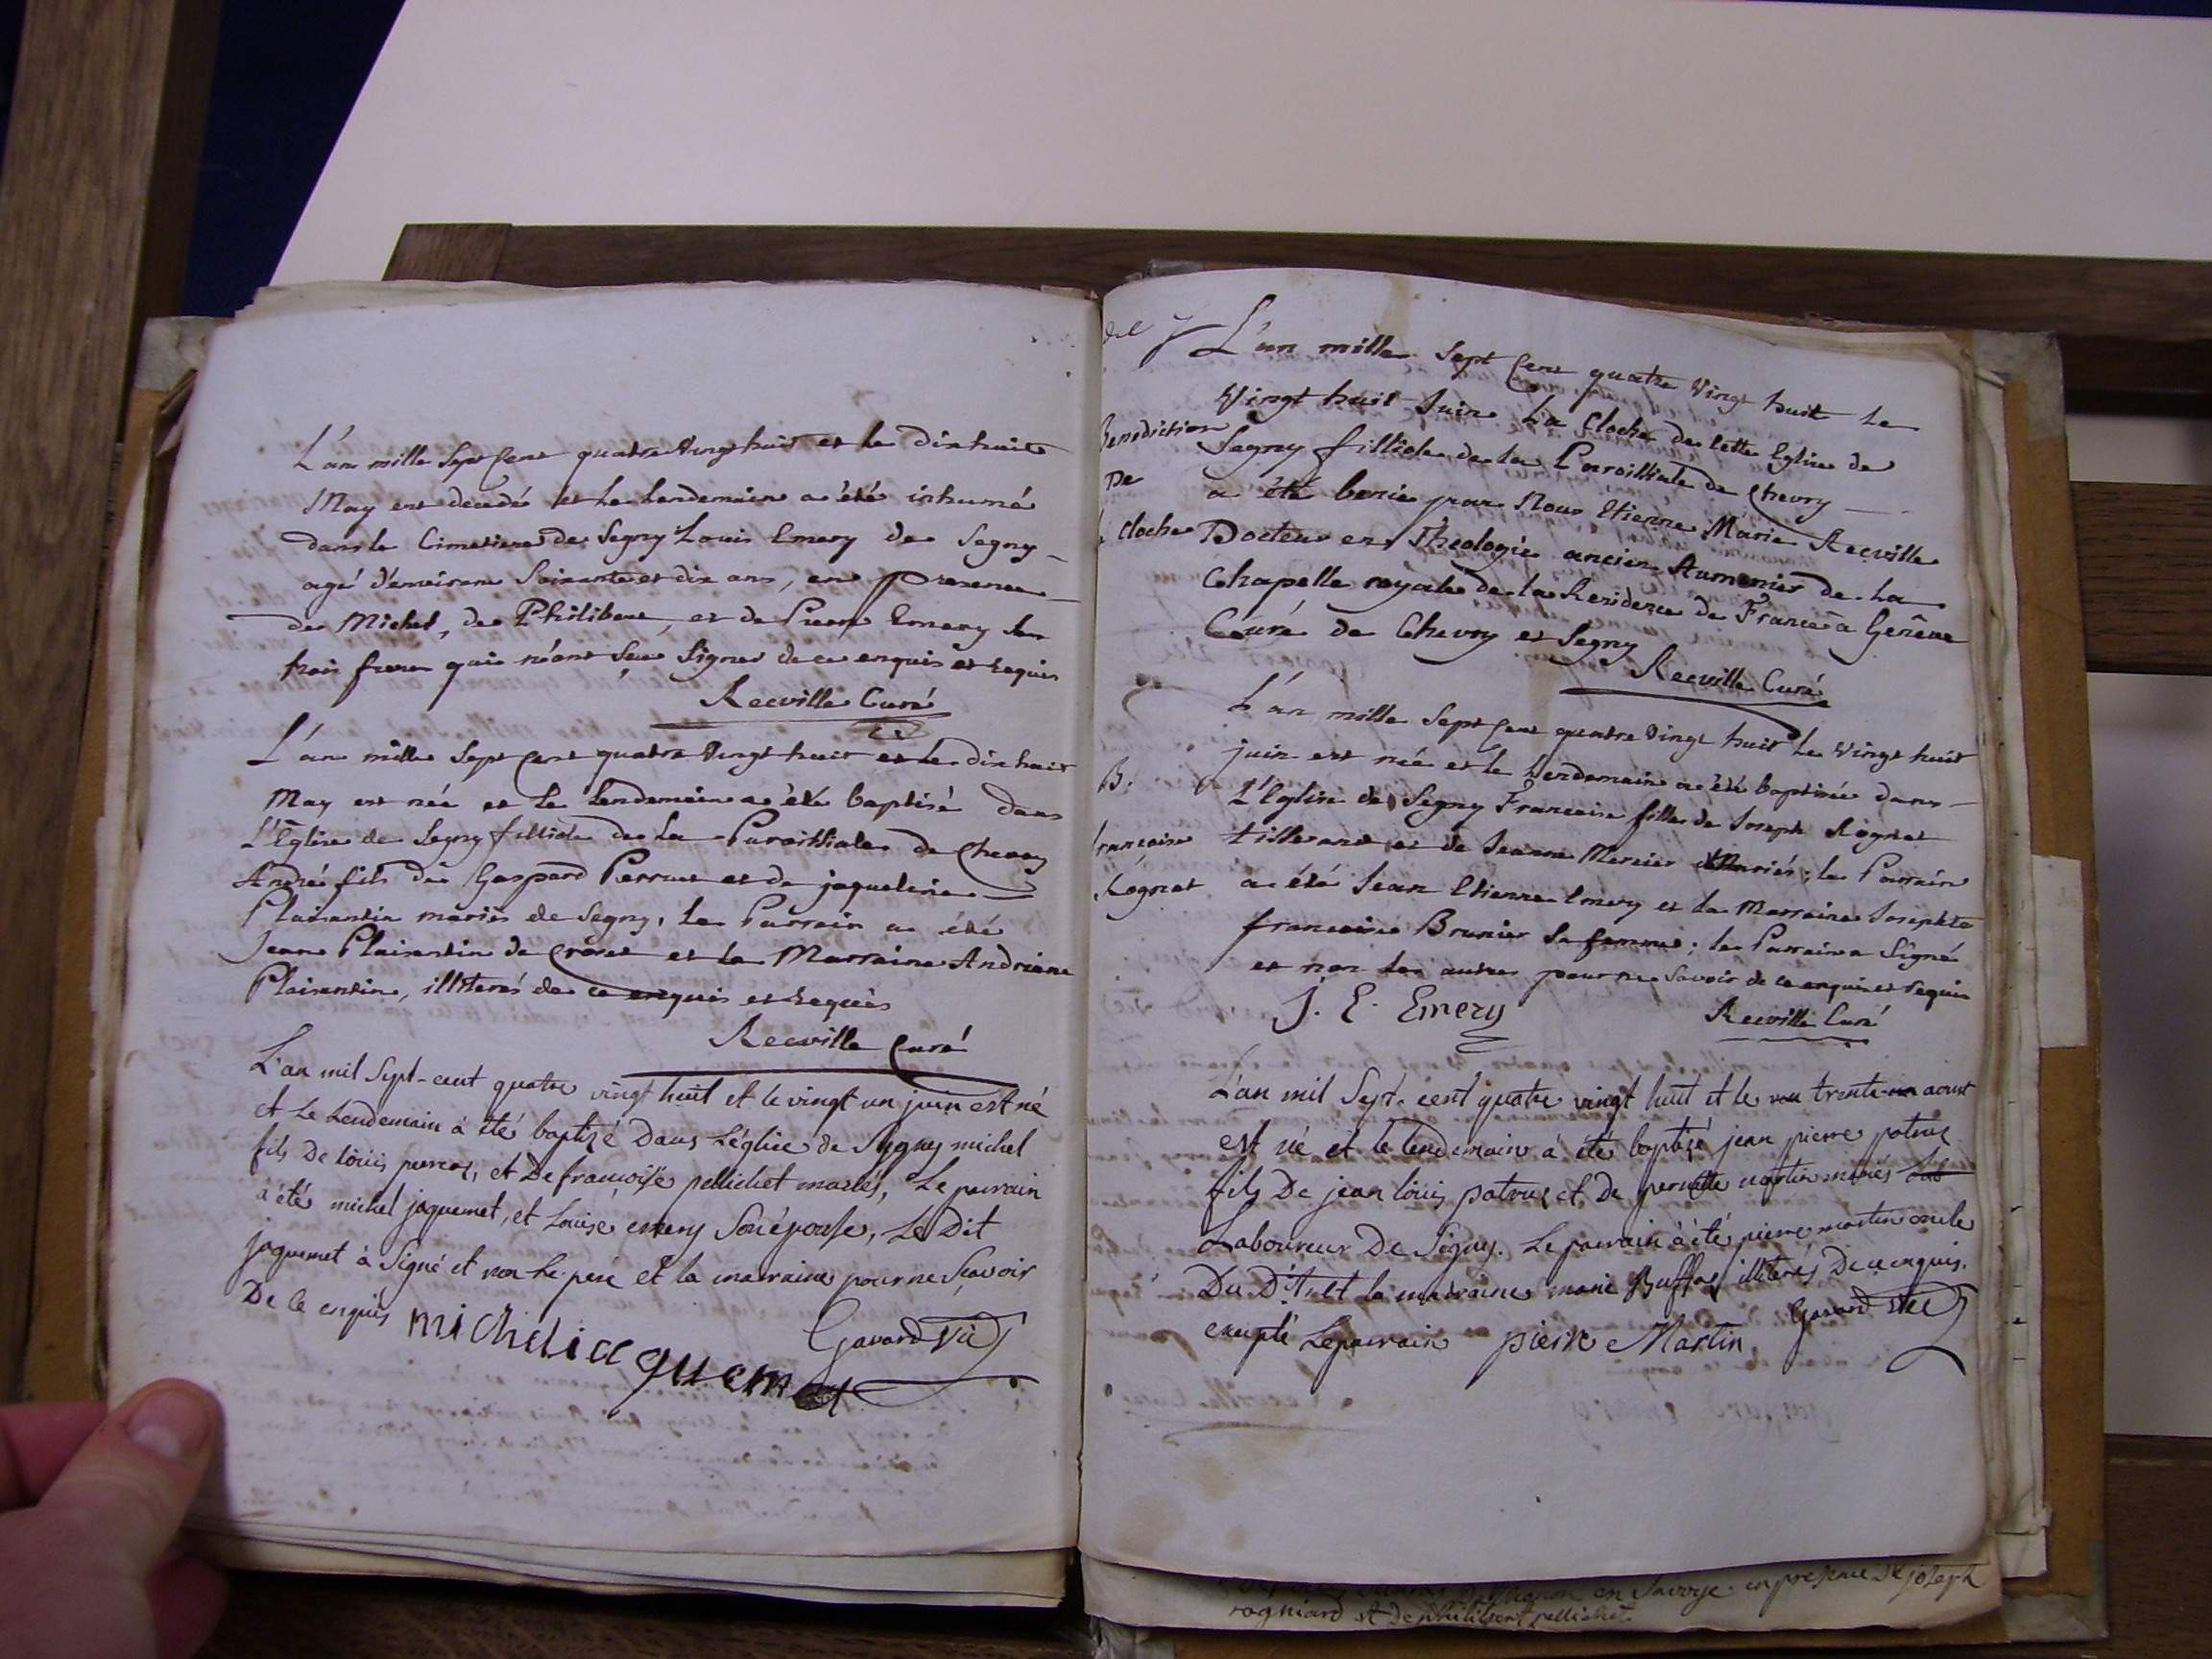 L'an mille Sept Cent quatre Vingt huit et le dix huit
May est decedé et le lendemain a été inhumé
dans le Cimetiere de Segny Louis Emery de Segny
agé d'environ Soixante et dix ans, en presence
de Michel, de Philibert, et de Pierre Emery Ses
trois freres qui n'ont Sçu Signer de ce enquis et requis
Recville Curé
L'an mille Sept Cent quatre Vingt huit et le dix huit
May est née et le lendemain a été baptisé dans
L'Eglise de Segny filliole de la Paroissiale de Chevry
André fils de Gaspard Perrus et de jaqueline
Plaisantin mariés de Segny, le Parrain a été
Jean Plaisantin de Crozet et la Marraine Andriane
Plaisantin, illiterés de ce enquis et requis
Recville Curé
L'an mil Sept-cent quatre vingt huit et le vingt un juin est né
et Le Lendemain à été baptizé Dans L'église de Segny michel
fils De loüis perras, et De françoise pellichet mariés, Le parrain
à été michel jaquemet, et Louise emery Son épouse, Le Dit
jaquemet à Signé et non Le pere et la marraine pour ne Sçavoir
De ce enquis
michel iaquemet
Gavard Vic
L'an mille Sept Cent quatre Vingt huit le
Vingt huit Juin La Cloche de cette Eglise de
Benediction
Segny filliole de la Paroissiale de Chevry
De
a été benie par Nous Etienne Marie Recville
cloche
Docteur en Théologie ancien Aumonier de la
Chapelle royale de la Residence de France à Genêve
Curé de Chevry et Segny
Recville Curé
L'an mille Sept Cent quatre Vingt huit le Vingt huit
juin est née et le lendemain a été baptisée dans
B.
L'Eglise de Segny Francoise fille de Joseph Rognat
francoise
tisserand et de Jeanne Mercier Mariés; le Parrain
Rognat
a été Jean Etienne Emery et la Marraine Josephte
francoise Brunier Sa femme; le Parrain a Signé
et non les autres pour ne Savoir de ce enquis et requis
J. E. Emery
Recville Curé
L'an mil Sept-cent quatre vingt huit et le trente aoust
est né et le lendemain à été baptizé jean pierre patrus
fils De jean loüis patrus et De pernette martin mariés
Laboureur De Segny. Le parrain à été pierre martin oncle
Du D.t et la marraine marie Buffas illiterés De ce enquis.
excepté Le parrain pierre Martin Gavard Vic
en Savoye en presence De joseph
rogniard et De philibert pellichet